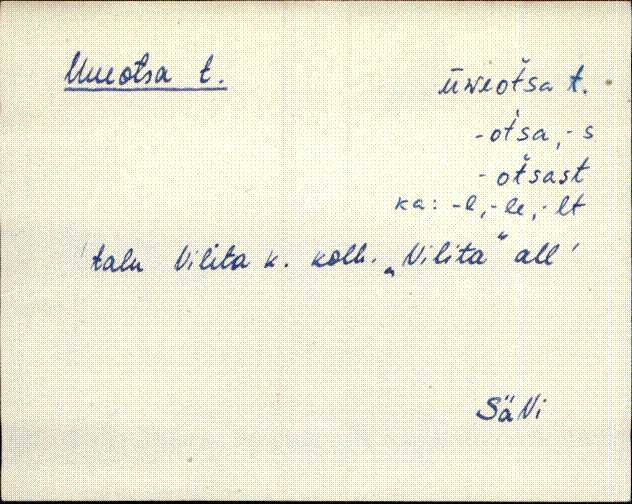 Uueotsa t.
üweotsa t.
-otsa, -s
-otsast
ka: -l, -le, -lt
'talu Vilita k. kolh. „Vilita" all'
SäVi